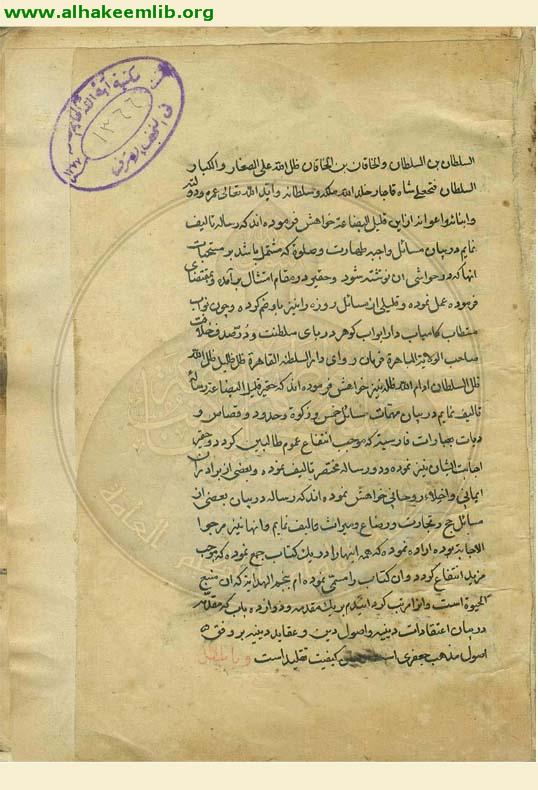 www.alhakeemlib.org
مكتبة آية الله الحكيم العامة
١٣٦٦
في النجف الاشرف
السلطان بن السلطان والخاقان بن الخاقان ظل الله على الصغار والكبار
السلطان فتحعلى شاه قاجار خلد الله ملكه وسلطانه وابد الله تعالى عمره ودولته
وابنائه واعوانه از اين قليل البضاعة خواهش فرموده اند كه رساله تاليف
نمايم در بيان مسائل واجبه طهارت وصلوة كه مشتمل باشد بر مستحبات
انها كه در حواشى ان نوشته شود وحقير در مقام امتثال بر آمده وبمقتضاى
فرموده عمل نموده وقليلى از مسائل روزه را نيز باو ضم كرده وچون نواب
مستطاب كامياب دارا بواب كوهر درياى سلطنت ودر صدف خلافت
صاحب الولاية الباهرة فرمان رواى دار السلطنه القاهرة ظل ظليل ظل الله
ظل السلطان ادام الله ظله نيز خواهش فرموده اند كه حقير قليل البضاعة رساله
تاليف نمايم در بيان مهمات مسائل خمس وزكوة وحدود وقصاص و
ديات بعبارات فارسية كه موجب انتفاع عموم طالبين كردد وحقير
اجابت ايشان نيز نموده ودو رساله مختصر تاليف نموده وبعضى از برادران
ايمانى واخلاء روحانى خواهش نموده اند كه رساله در بيان بعضى از
مسائل حج وتجارت ورضاع وميراث تاليف نمايم وانها نيز مرجوا
الاجابة بوده اراده نموده كه همه اينها را در يك كتاب جمع نموده كه موجب
مزيد انتفاع كردد وان كتاب را مسمى نموده ام بنجم الهداية كه ان منبع
الحيوة است وانرا مرتب كردانيدم بر يك مقدمه ودوازده باب كه مقدمه
در بيان اعتقادات دينيه واصول دين وعقايد دينيه بر وفق
اصول مذهب جعفرى است كيفيت تقليد است